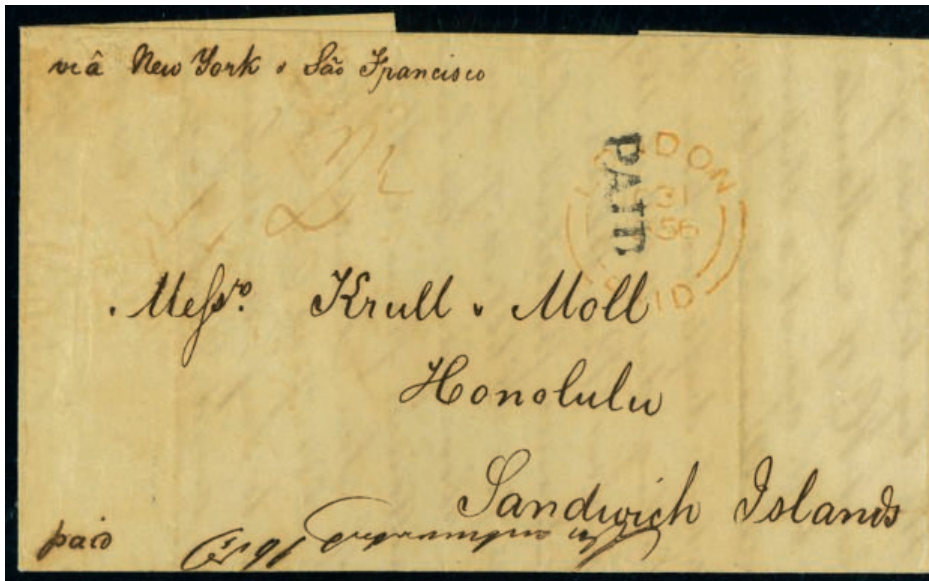 viâ New York & São Francisco
PAID
LONDON
31
56
PAID
Messrs. Krull & Moll
Honolulu
Sandwich Islands
paid